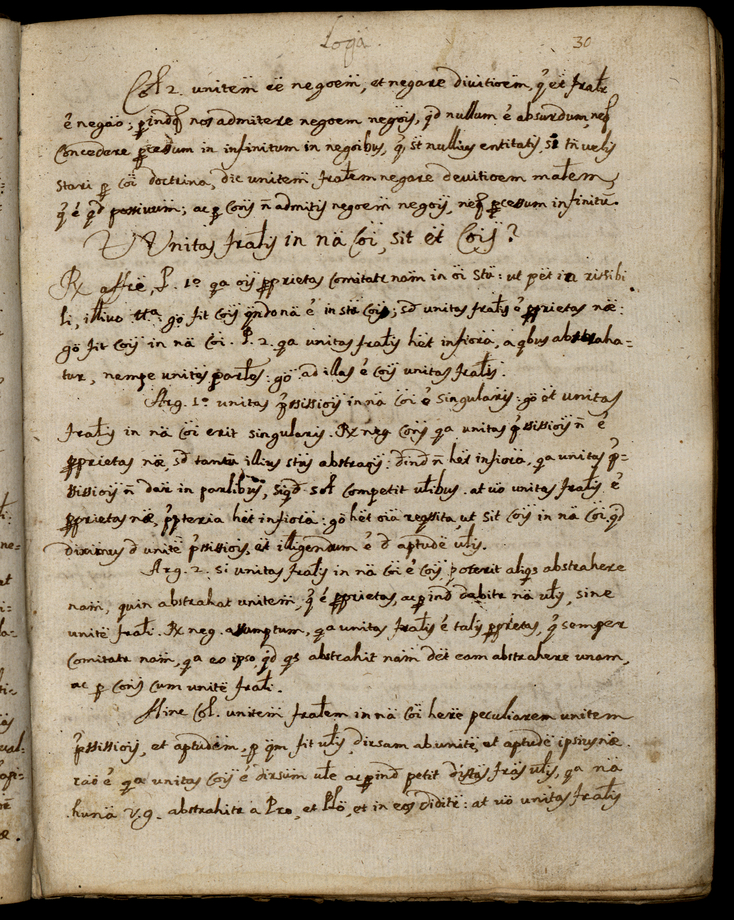 Logã
30
Col. 2. unitem̃ ẽẽ negoem̃, et negare divitioem̃, q̃ et fralr̃
ẽ negão; p̱indẽ nos admitere negoem negõis, qd nullum ẽ absurdum, neq̃
Concedere p̱cessum in infinitum in negoibus, q̃ st nullius entitatis, si tñ velis
stari p̱ Coi doctrina, dic unitem̃ fralẽm negare devitioem malẽm,
q̃ ẽ qd passivum; ac p̱ Cons ñ admitis negoem̃ negõis, neq̃ p̱cessum infinitũ.
Unitas fralis in nã Coi, sit et Cois?
R. affẽ, P. 1º qa ois p̱prietas Comitatr nam̃ in oi stu: ut pet in risibi
li, illivo tta gº fit Cois qndo nã ẽ in stu Cois; sd unitas fralis ẽ p̱prietas næ:
gº fit Cois in nã Coi. P. 2. qa unitas fralis het infiora, a qbus abstraha-
tur, nempe unites p̱arles: gº ad illas ẽ Cois unitas fralis.
Arg. 1º unitas p̃ssissiois in nã Coi ẽ singularis: gº et unitas
fralis in nã Coi erit singularis. R. neg. Cons qa unitas p̃ssissiois ñ ẽ
p̱prietas næ, sd tantũ illius stus abstractis; dind ñ het infiora, qa unitas p̃-
ssissiois ñ datr in parlibus, siqd sol Competit ulibus. at vº unitas fralis ẽ
p̱prietas næ, p̱pterea het infiora: gº het oia reqsita ut sit Cois in nã Coi, qd
diximus d unite p̃ssissiois, et illigendum ẽ d aptude ulis.
Arg. 2. Si unitas fralis in nã Coi ẽ Cois, poterit aliqs abstrahere
nam̃, quin abstrahat unitem̃, q̃ ẽ p̱prietas, ac p̱ind dabitr nã ulis, sine
unite frali. R. neg. assumptum, qa unitas fralis ẽ talis p̱prietas, q̃ semper
Comitatr nam̃, qa eo ipso, qd qs abstrahit nam̃ det eam abstrahere unam,
ac p̱ Cons cum unite frali.
Hinc Col. unitem̃ fralem in nã Coi here peculiarem unitem
p̃ssissiois, et aptudem, p̱ qm̃ fit ulis, dirsam ab unite, et aptude ipsius næ.
raõ ẽ qa unitas Cois ẽ dirsum ule ac p̱ind petit distas fras ulis, qa nã
hunã v.g. abstrahitr a Pro, et Plo, et in eos dividitr: at vº unitas fralis